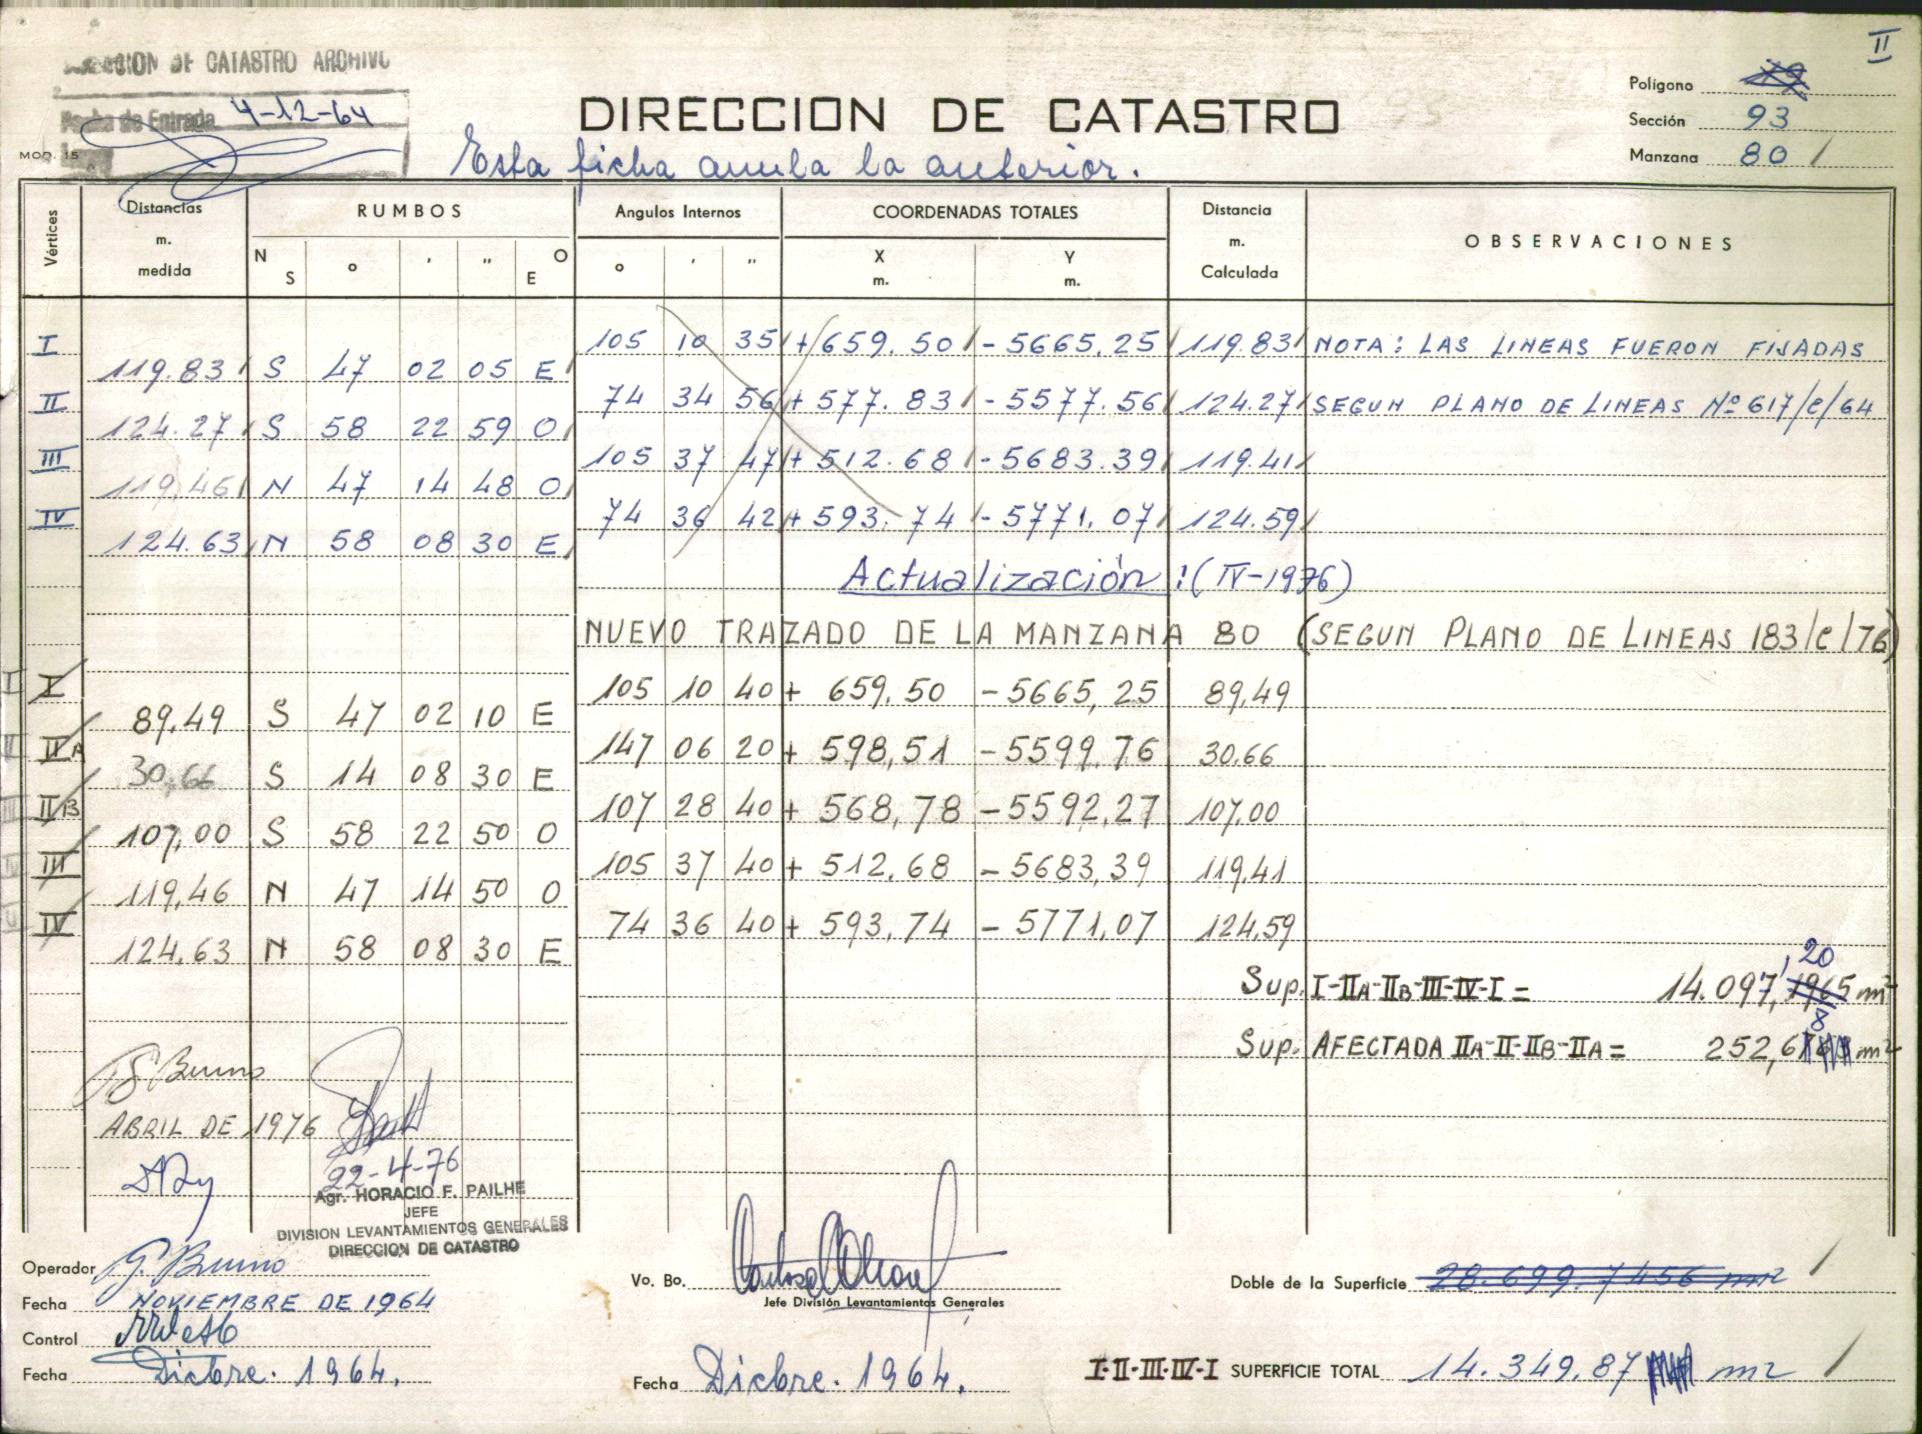 II
DIRECCION DE CATASTRO ARCHIVO
Fecha de Entrada 4-12-64
MOD. 15
DIRECCION DE CATASTRO
Esta ficha anula la anterior.
Polígono
Sección 93
Manzana 80
Vértices
Distancias m. medida
RUMBOS
N S ° ' " O E
Angulos Internos
° ' "
COORDENADAS TOTALES
X m. Y m.
Distancia m. Calculada
OBSERVACIONES
I 105 10 35 + 659.50 - 5665.25 119.83 NOTA: LAS LINEAS FUERON FIJADAS
119.83 S 47 02 05 E
II 74 34 56 + 577.83 - 5577.56 124.27 SEGUN PLANO DE LINEAS Nº 617/C/64
124.27 S 58 22 59 O
III 105 37 47 + 512.68 - 5683.39 119.41
119.46 N 47 14 48 O
IV 74 36 42 + 593.74 - 5771.07 124.59
124.63 N 58 08 30 E
Actualización: (IV-1976)
NUEVO TRAZADO DE LA MANZANA 80 (SEGUN PLANO DE LINEAS 183/C/76)
I I 105 10 40 + 659.50 - 5665,25 89,49
89,49 S 47 02 10 E
II IIA 147 06 20 + 598,51 - 5599,76 30,66
30,66 S 14 08 30 E
III IIB 107 28 40 + 568,78 - 5592,27 107,00
107,00 S 58 22 50 O
IV III 105 37 40 + 512,68 - 5683,39 119,41
119,46 N 47 14 50 O
V IV 74 36 40 + 593,74 - 5771,07 124,59
124,63 N 58 08 30 E
Sup. I-IIA-IIB-III-IV-I = 14.097,1965 m²
,20
Sup. AFECTADA IIA-II-IIB-IIA = 252,6 m²
8
G Bruno
ABRIL DE 1976
22-4-76
Agr. HORACIO F. PAILHE
JEFE
DIVISION LEVANTAMIENTOS GENERALES
DIRECCION DE CATASTRO
Operador G. Bruno
Fecha NOVIEMBRE DE 1964
Control
Fecha Dicbre. 1964.
Vo. Bo.
Jefe División Levantamientos Generales
Fecha Dicbre. 1964.
Doble de la Superficie 28.699.7456 m2
I-II-III-IV-I SUPERFICIE TOTAL 14.349.87 m2